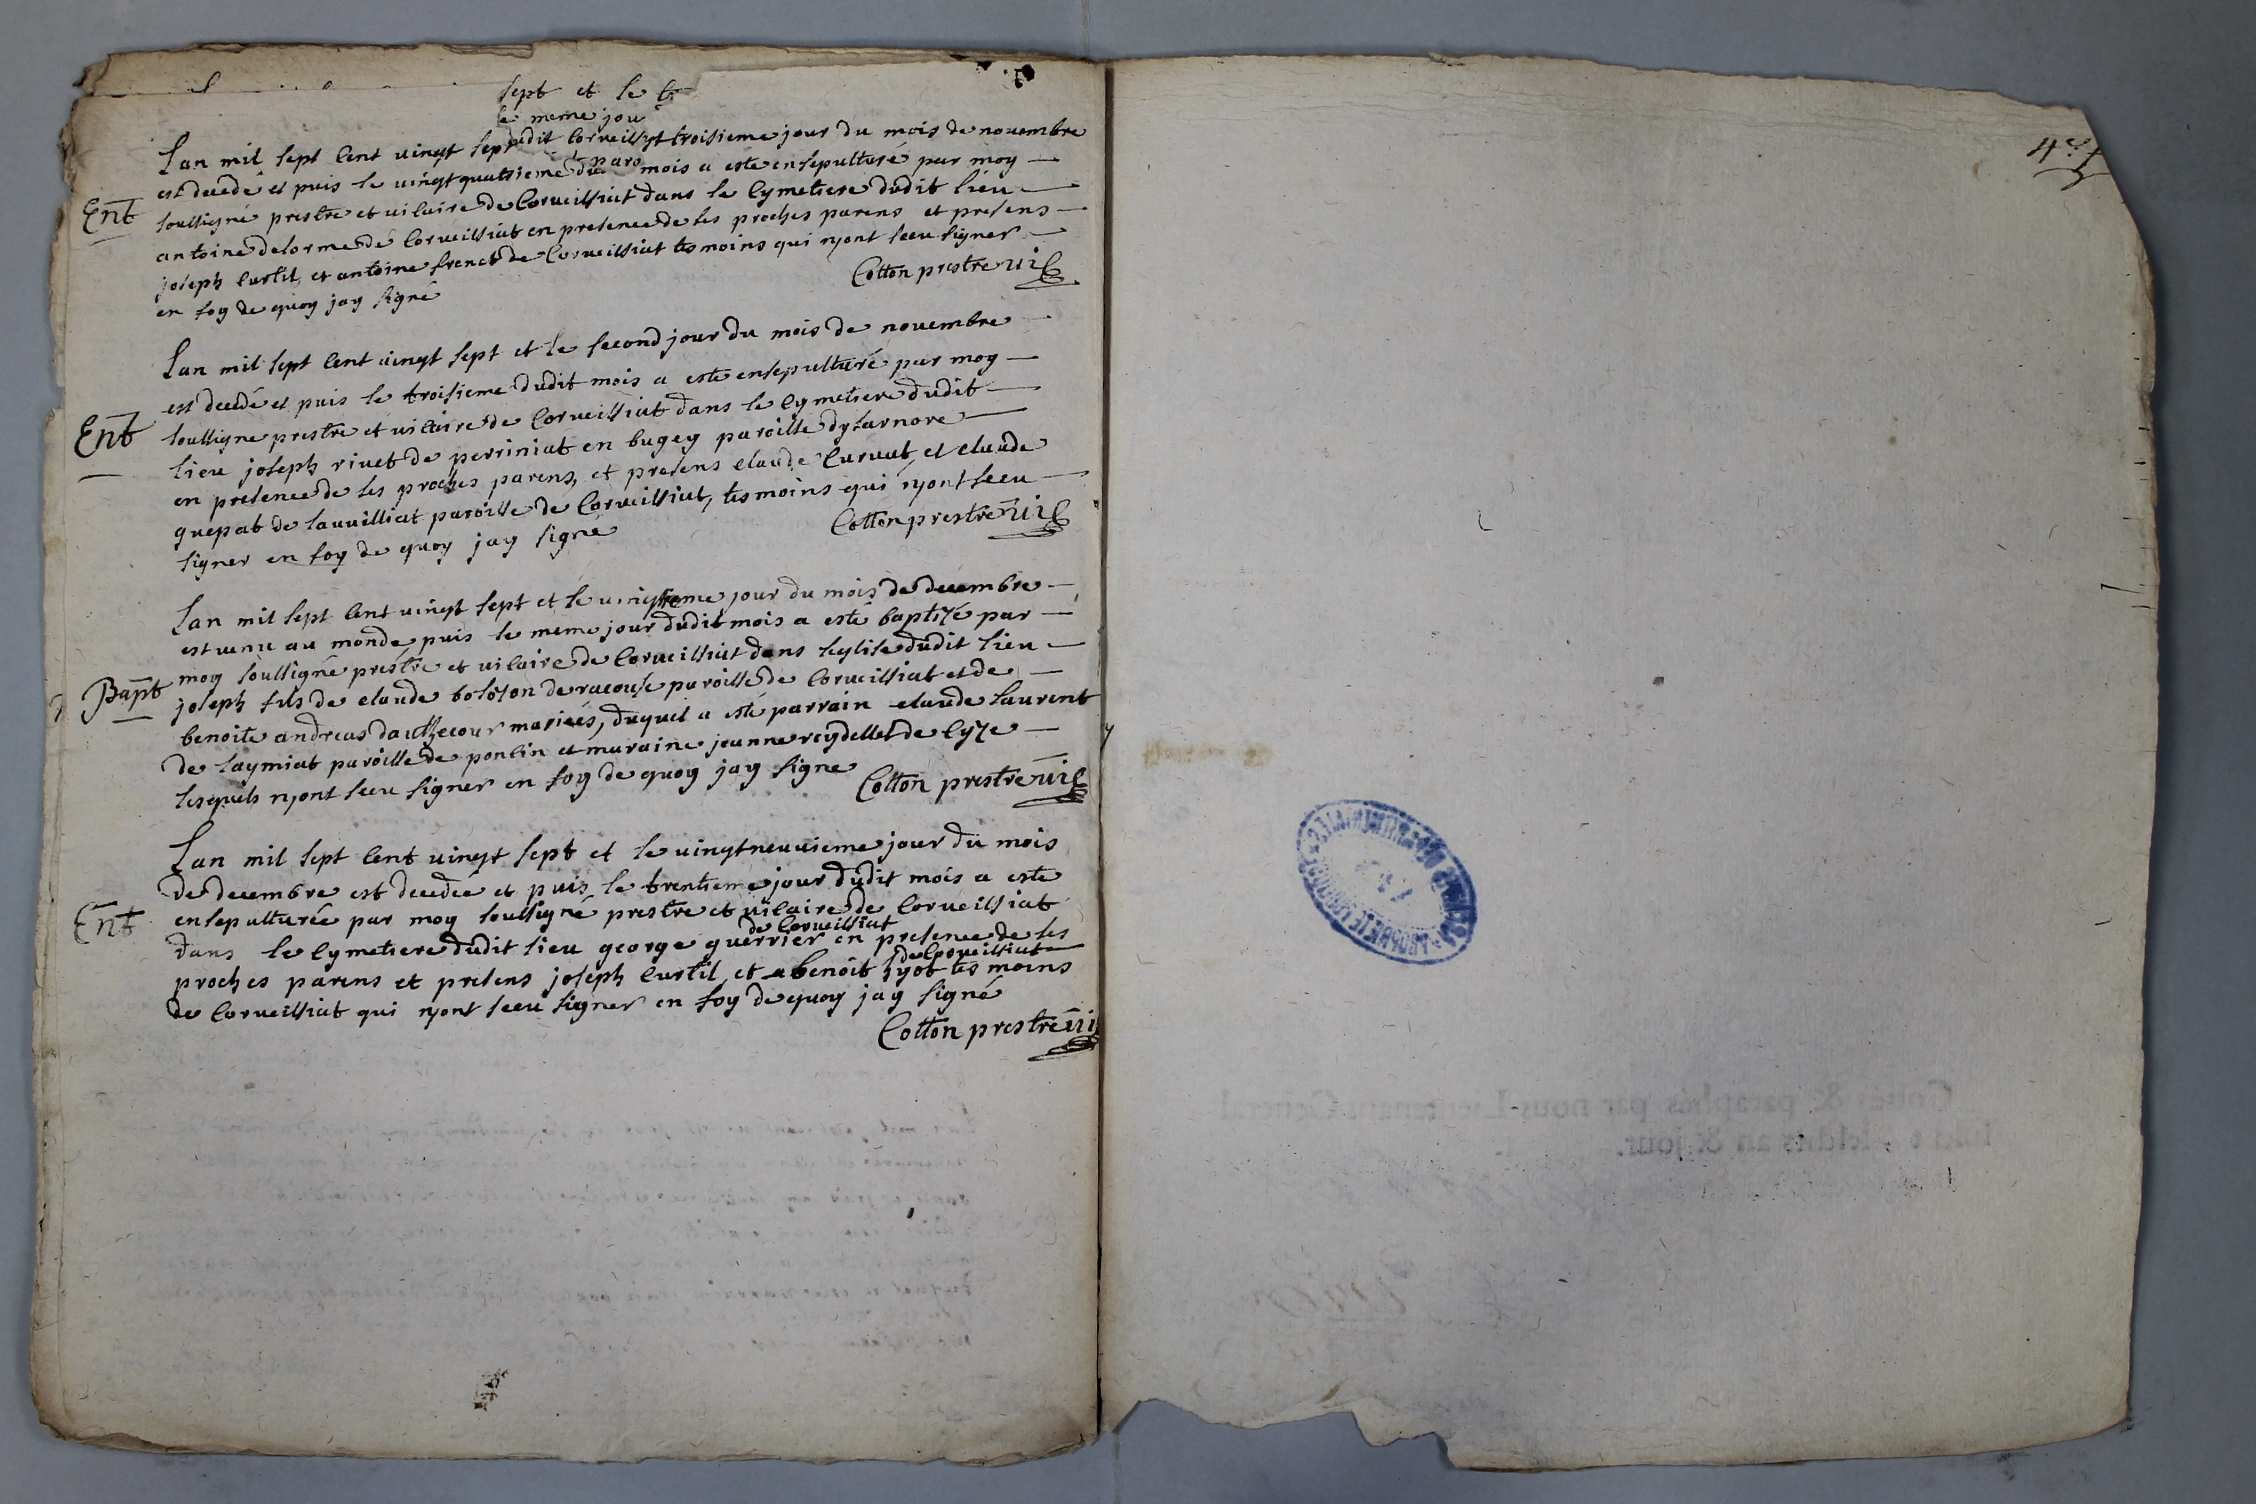 sept et le
le meme jou
Lan mil sept Cent vingt sept udit Corveissiat troisieme jour du mois de novembre
est decedé et puis le vingt quatrieme du paro mois a esté ensepulturé par moy
Ent
soussigné prestre et vicaire de Corveissiat dans le Cymetiere dudit lieu
antoine delorme de Corveissiat en presence de ses proches parens et presens
joseph Curtil, et antoine frenet de Corveissiat tesmoins qui nyont sceu signer
en foy de quoy jay signé
Cotton prestre vic
Lan mil sept Cent vingt sept et le second jour du mois de novembre
est decedé et puis le troisieme dudit mois a esté ensepulturé par moy
soussigne prestre et vicaire de Corveissiat dans le Cymetiere dudit
Ent
lieu joseph rivet de perriniat en bugey paroisse dysarnore
en presence de ses proches parens, et presens claude Curvat, et claude
quepat de sauvilliat paroisse de Corveissiat, tesmoins qui nyont sceu
signer en foy de quoy jay signé
Cotton prestre vic
Lan mil sept Cent vingt sept et le vingtieme jour du mois de decembre
est venu au monde, puis le meme jour dudit mois a esté baptizé par
moy soussigné prestre et vicaire de Corveissiat dans leglise dudit lieu
Bapt
joseph fils de claude bolozon de racouse paroisse de Corveissiat et de
benoite andreas dauthecour mariés, duquel a esté parrain claude Laurent
de saymiat paroisse de poncin et maraine jeanne reydellet de Cyze
lesquels nyont sceu signer en foy de quoy jay signe
Cotton prestre vic
Lan mil sept Cent vingt sept et le vingtneuvieme jour du mois
de decembre est decedée et puis le trentieme jour dudit mois a esté
ensepulturée par moy soussigné prestre et vicaire de Corveissiat
Ent
de Corveissiat
dans le Cymetiere dudit lieu george guerrier en presence de ses
de Corveissiat
proches parens et presens joseph Curtil et benoit tesmoins
de Corveissiat qui nyont sceu signer en foy de quoy jay signé
Cotton prestre vi